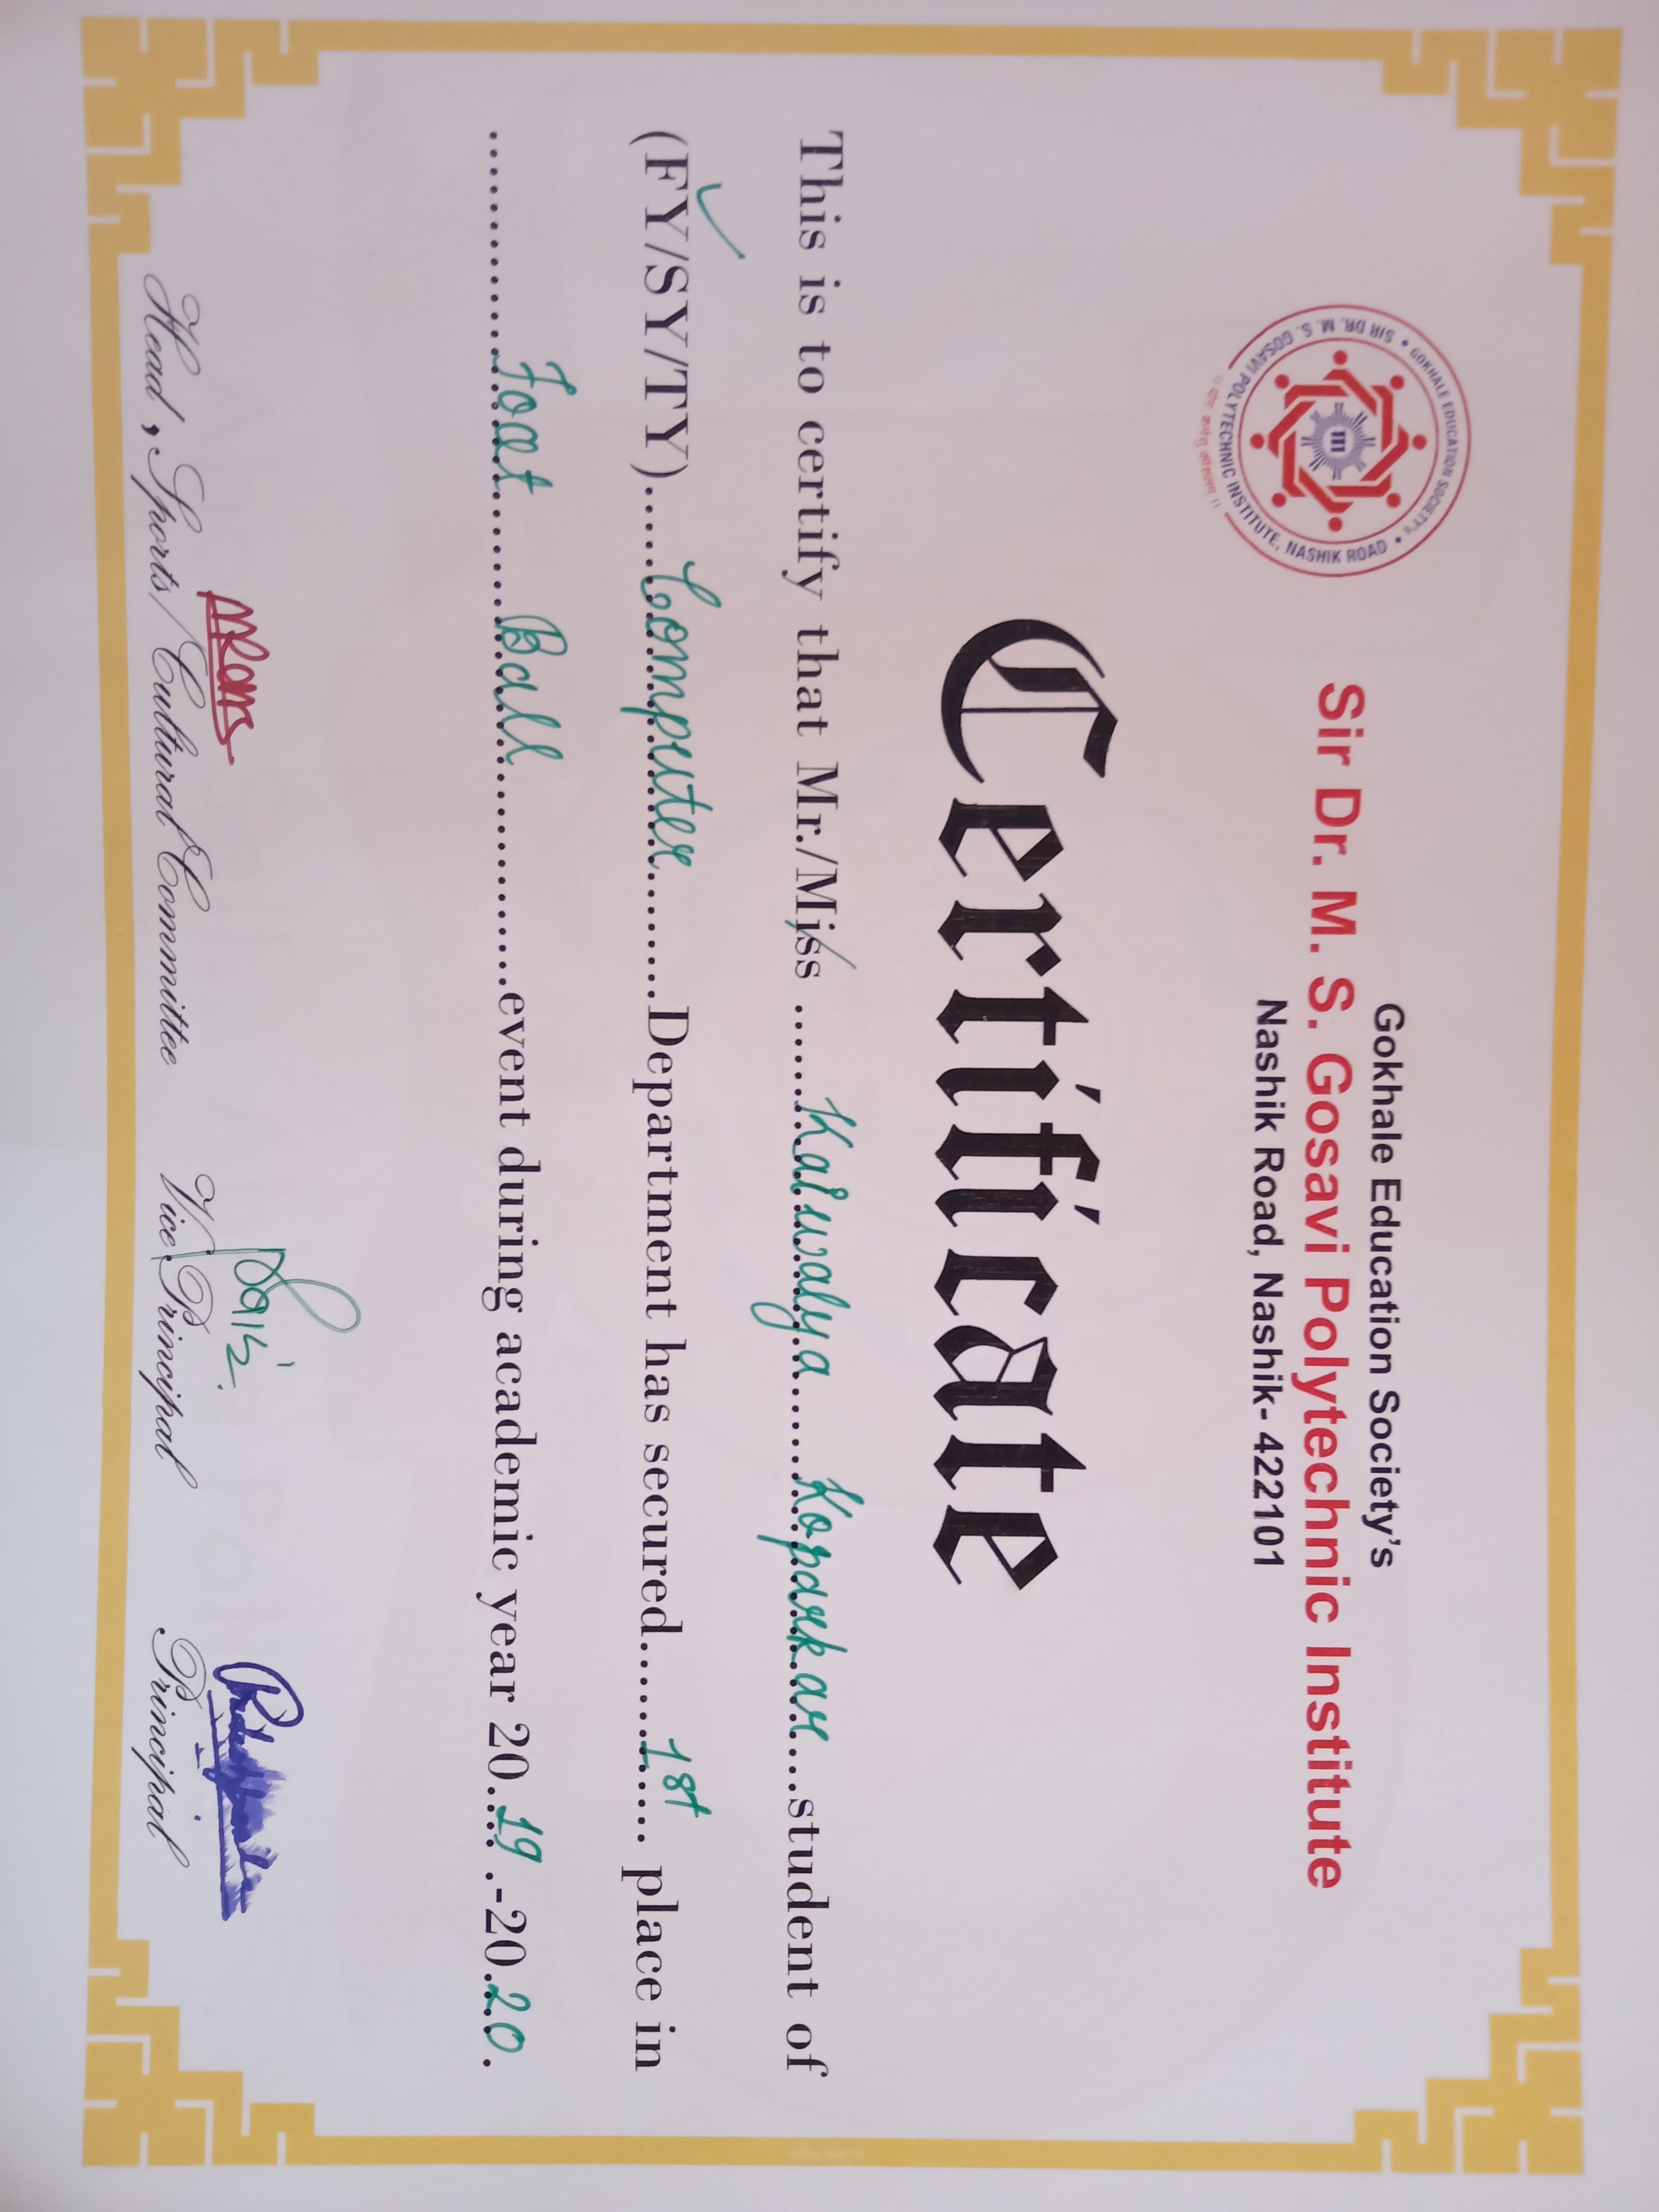 GOKHALE EDUCATION SOCIETY'S
SIR DR. M. S. GOSAVI POLYTECHNIC INSTITUTE, NASHIK ROAD
m
।। योगः कर्मसु कौशलम् ।।
Gokhale Education Society's
Sir Dr. M. S. Gosavi Polytechnic Institute
Nashik Road, Nashik- 422101
Certificate
This is to certify that Mr./Miss ......Kaiwalya.....Koparkar...student of
(FY/SY/TY).....Computer........Department has secured......1st..... place in
................Foot......Ball...............event during academic year 20.19.-20.20.
Head , Sports/Cultural Committee
Vice Principal
Principal